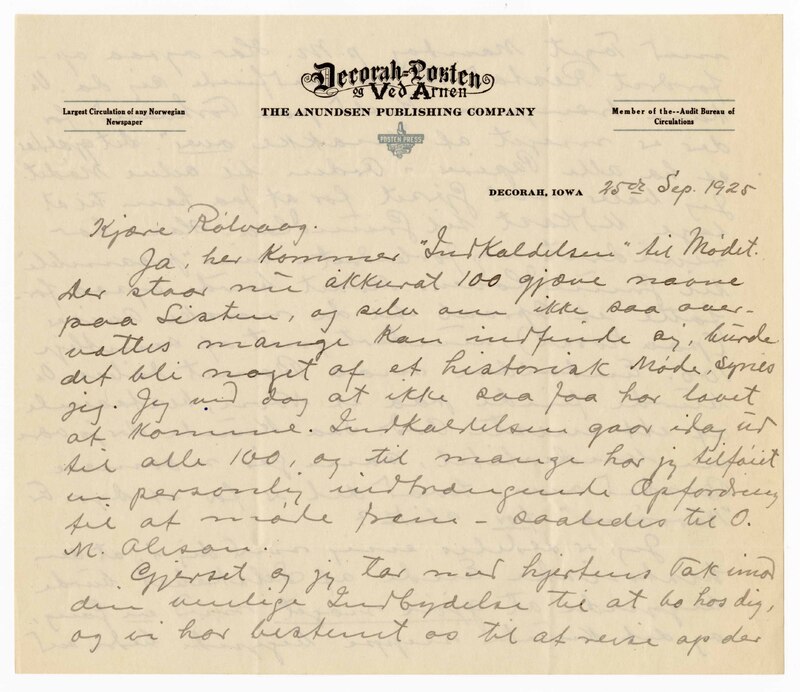 Decorah-Posten
og Ved Arnen
THE ANUNDSEN PUBLISHING COMPANY
Largest Circulation of any Norwegian
Newspaper
Member of the--Audit Bureau of
Circulations
POSTEN PRESS
DECORAH, IOWA 25de Sep. 1925
Kjære Rölvaag.
Ja, her kommer "Indkaldelsen" til Mødet.
Der staar nu akkurat 100 gjæve navne
paa Listen, og selv om ikke saa over-
vættes mange kan indfinde sig, burde
det bli noget af et historisk Møde, synes
jeg. Jeg ved dog at ikke saa faa har lovet
at komme. Indkaldelsen gaar idag ud
til alle 100, og til mange har jeg tilføiet
en personlig indtrængende Opfordring
til at møde frem – saaledes til O.
M. Oleson.
Gjerset og jeg tar med hjertens Tak imod
den venlige Indbydelse til at bo hos dig,
og vi har bestemt os til at reise op der